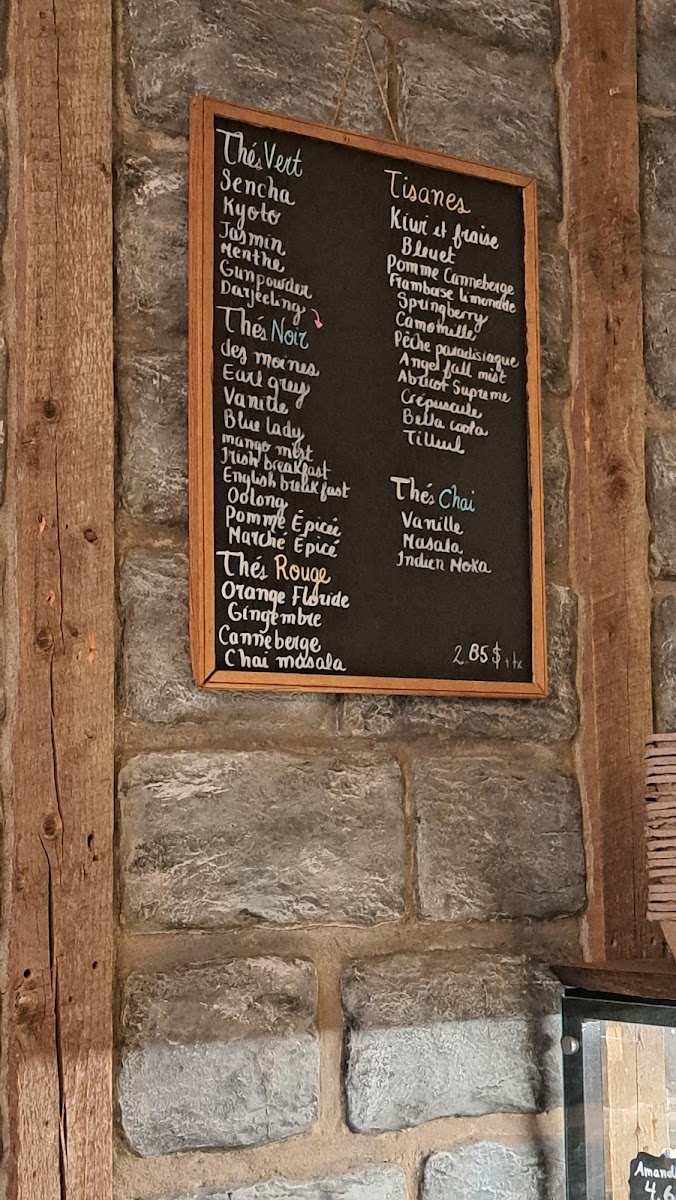 Thés Vert
Sencha
Kyoto
Jasmin
Menthe
Gunpowder
Darjeeling
Thés Noir
des moines
Earl grey
Vanille
Blue lady
mango mist
Irish breakfast
English breakfast
Oolong
Pomme Épicée
Marché Épicé
Thés Rouge
Orange Floride
Gingembre
Canneberge
Chai masala
Tisanes
Kiwi et fraise
Bleuet
Pomme Canneberge
Framboise Limonade
Springberry
Camomille
Pêche paradisiaque
Angel fall mist
Abricot Supreme
Crépuscule
Bella coola
Tilleul
Thés Chai
Vanille
Masala
Indien Moka
2.85$ + tx
Amand
4.6